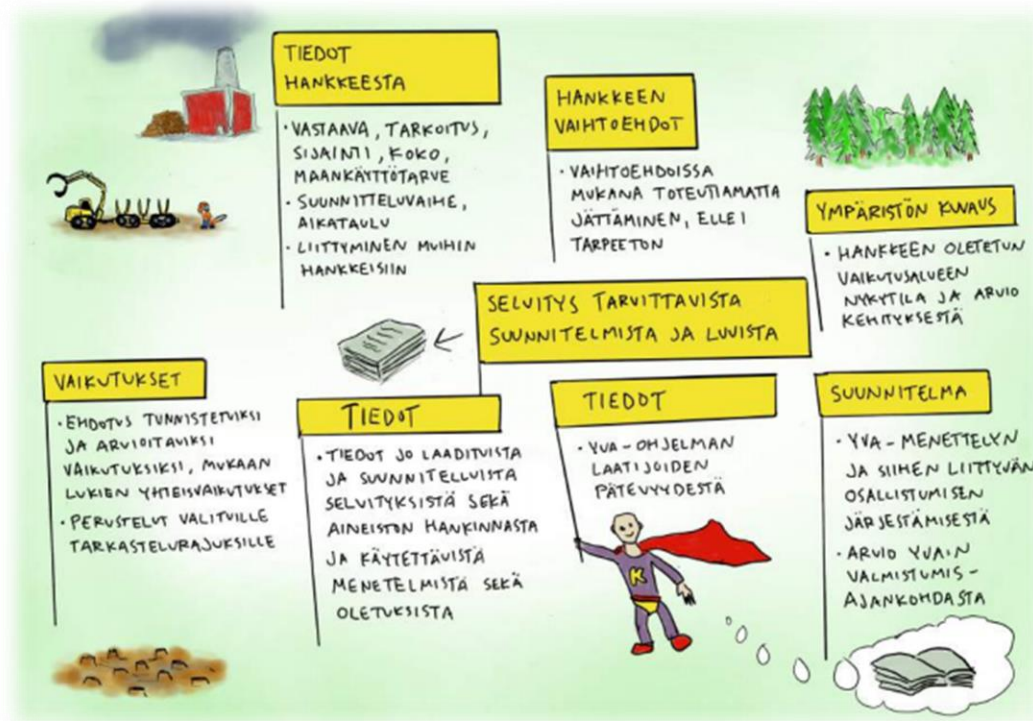 TIEDOT
HANKKEESTA
· VASTAAVA, TARKOITUS,
SIJAINTI, KOKO,
MAANKÄYTTÖTARVE
· SUUNNITTELUVAIHE,
AIKATAULU
· LIITTYMINEN MUIHIN
HANKKEISIIN
HANKKEEN
VAIHTOEHDOT
· VAIHTOEHDOISSA
MUKANA TOTEUTTAMATTA
JÄTTÄMINEN, ELLEI
TARPEETON
YMPÄRISTÖN KUVAUS
· HANKKEEN OLETETUN
VAIKUTUSALUEEN
NYKYTILA JA ARVIO
KEHITYKSESTÄ
SELVITYS TARVITTAVISTA
SUUNNITELMISTA JA LUVISTA
VAIKUTUKSET
· EHDOTUS TUNNISTETUIKSI
JA ARVIOITAVIKSI
VAIKUTUKSIKSI, MUKAAN
LUKIEN YHTEISVAIKUTUKSET
· PERUSTELUT VALITUILLE
TARKASTELURAJUKSILLE
TIEDOT
· TIEDOT JO LAADITUISTA
JA SUUNNITELLUISTA
SELVITYKSISTÄ SEKÄ
AINEISTON HANKINNASTA
JA KÄYTETTÄVISTÄ
MENETELMISTÄ SEKÄ
OLETUKSISTA
TIEDOT
· YVA-OHJELMAN
LAATIJOIDEN
PÄTEVYYDESTÄ
K
SUUNNITELMA
· YVA-MENETTELYN
JA SIIHEN LIITTYVÄN
OSALLISTUMISEN
JÄRJESTÄMISESTÄ
· ARVIO YVA:N
VALMISTUMIS-
AJANKOHDASTA